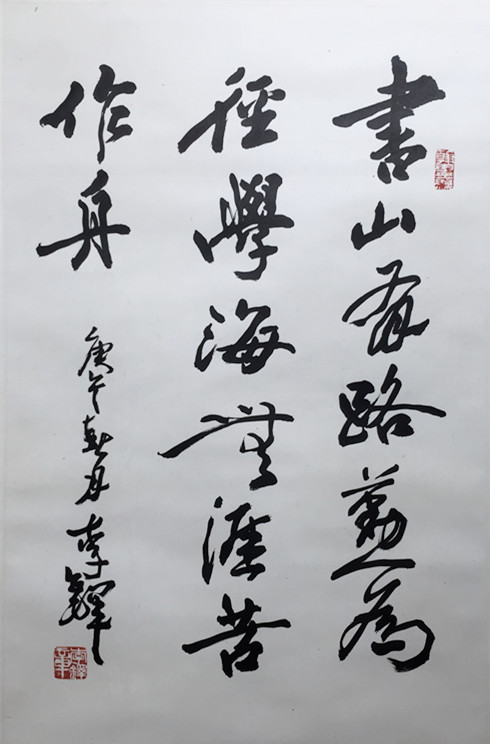 書山有路勤為
徑學海無涯苦
作舟
庚午春月李鐸